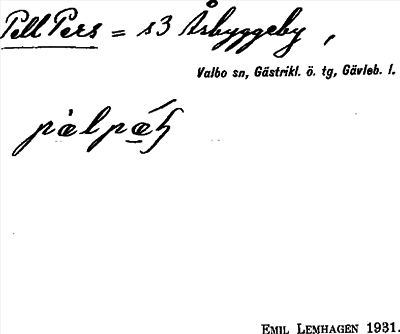 Pell Pers = s3 Årbyggeby,
Valbo sn, Gästrikl. ö. tg, Gävleb. l.
pὰlpǽꞕ
EMIL LEMHAGEN 1931.